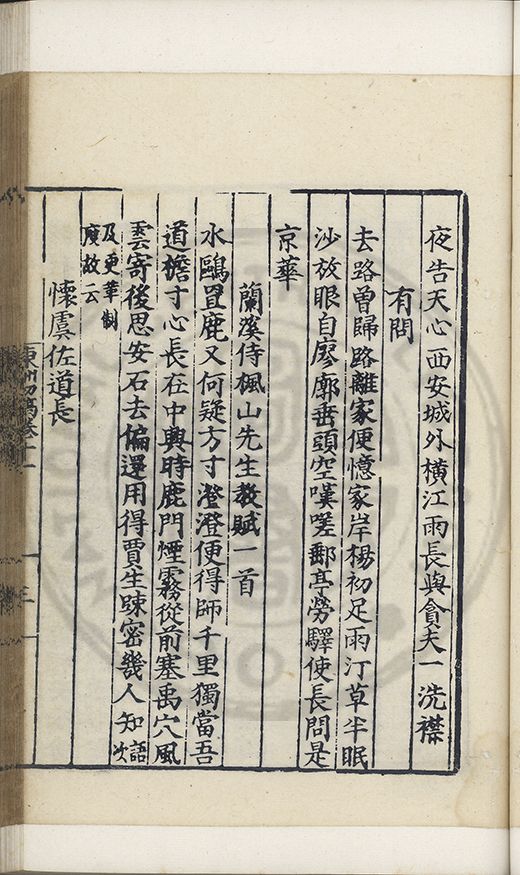 夜告天心西安城外橫江雨長與貪夫一洗襟
有問
去路曾歸路離家便憶家岸楊初足雨汀草半眠
沙放眼自廖廓垂頭空嘆嗟郵亭勞驛使長問是
京華
蘭溪侍楓山先生教賦一首
水鷗罝鹿又何疑方寸澄澄便得師千里獨當吾
道擔寸心長在中興時鹿門煙霧從前塞禹穴風
雲寄後思安石去偏還用得賈生疎密幾人知語次
及更革制
度故云
懷虞佐道長